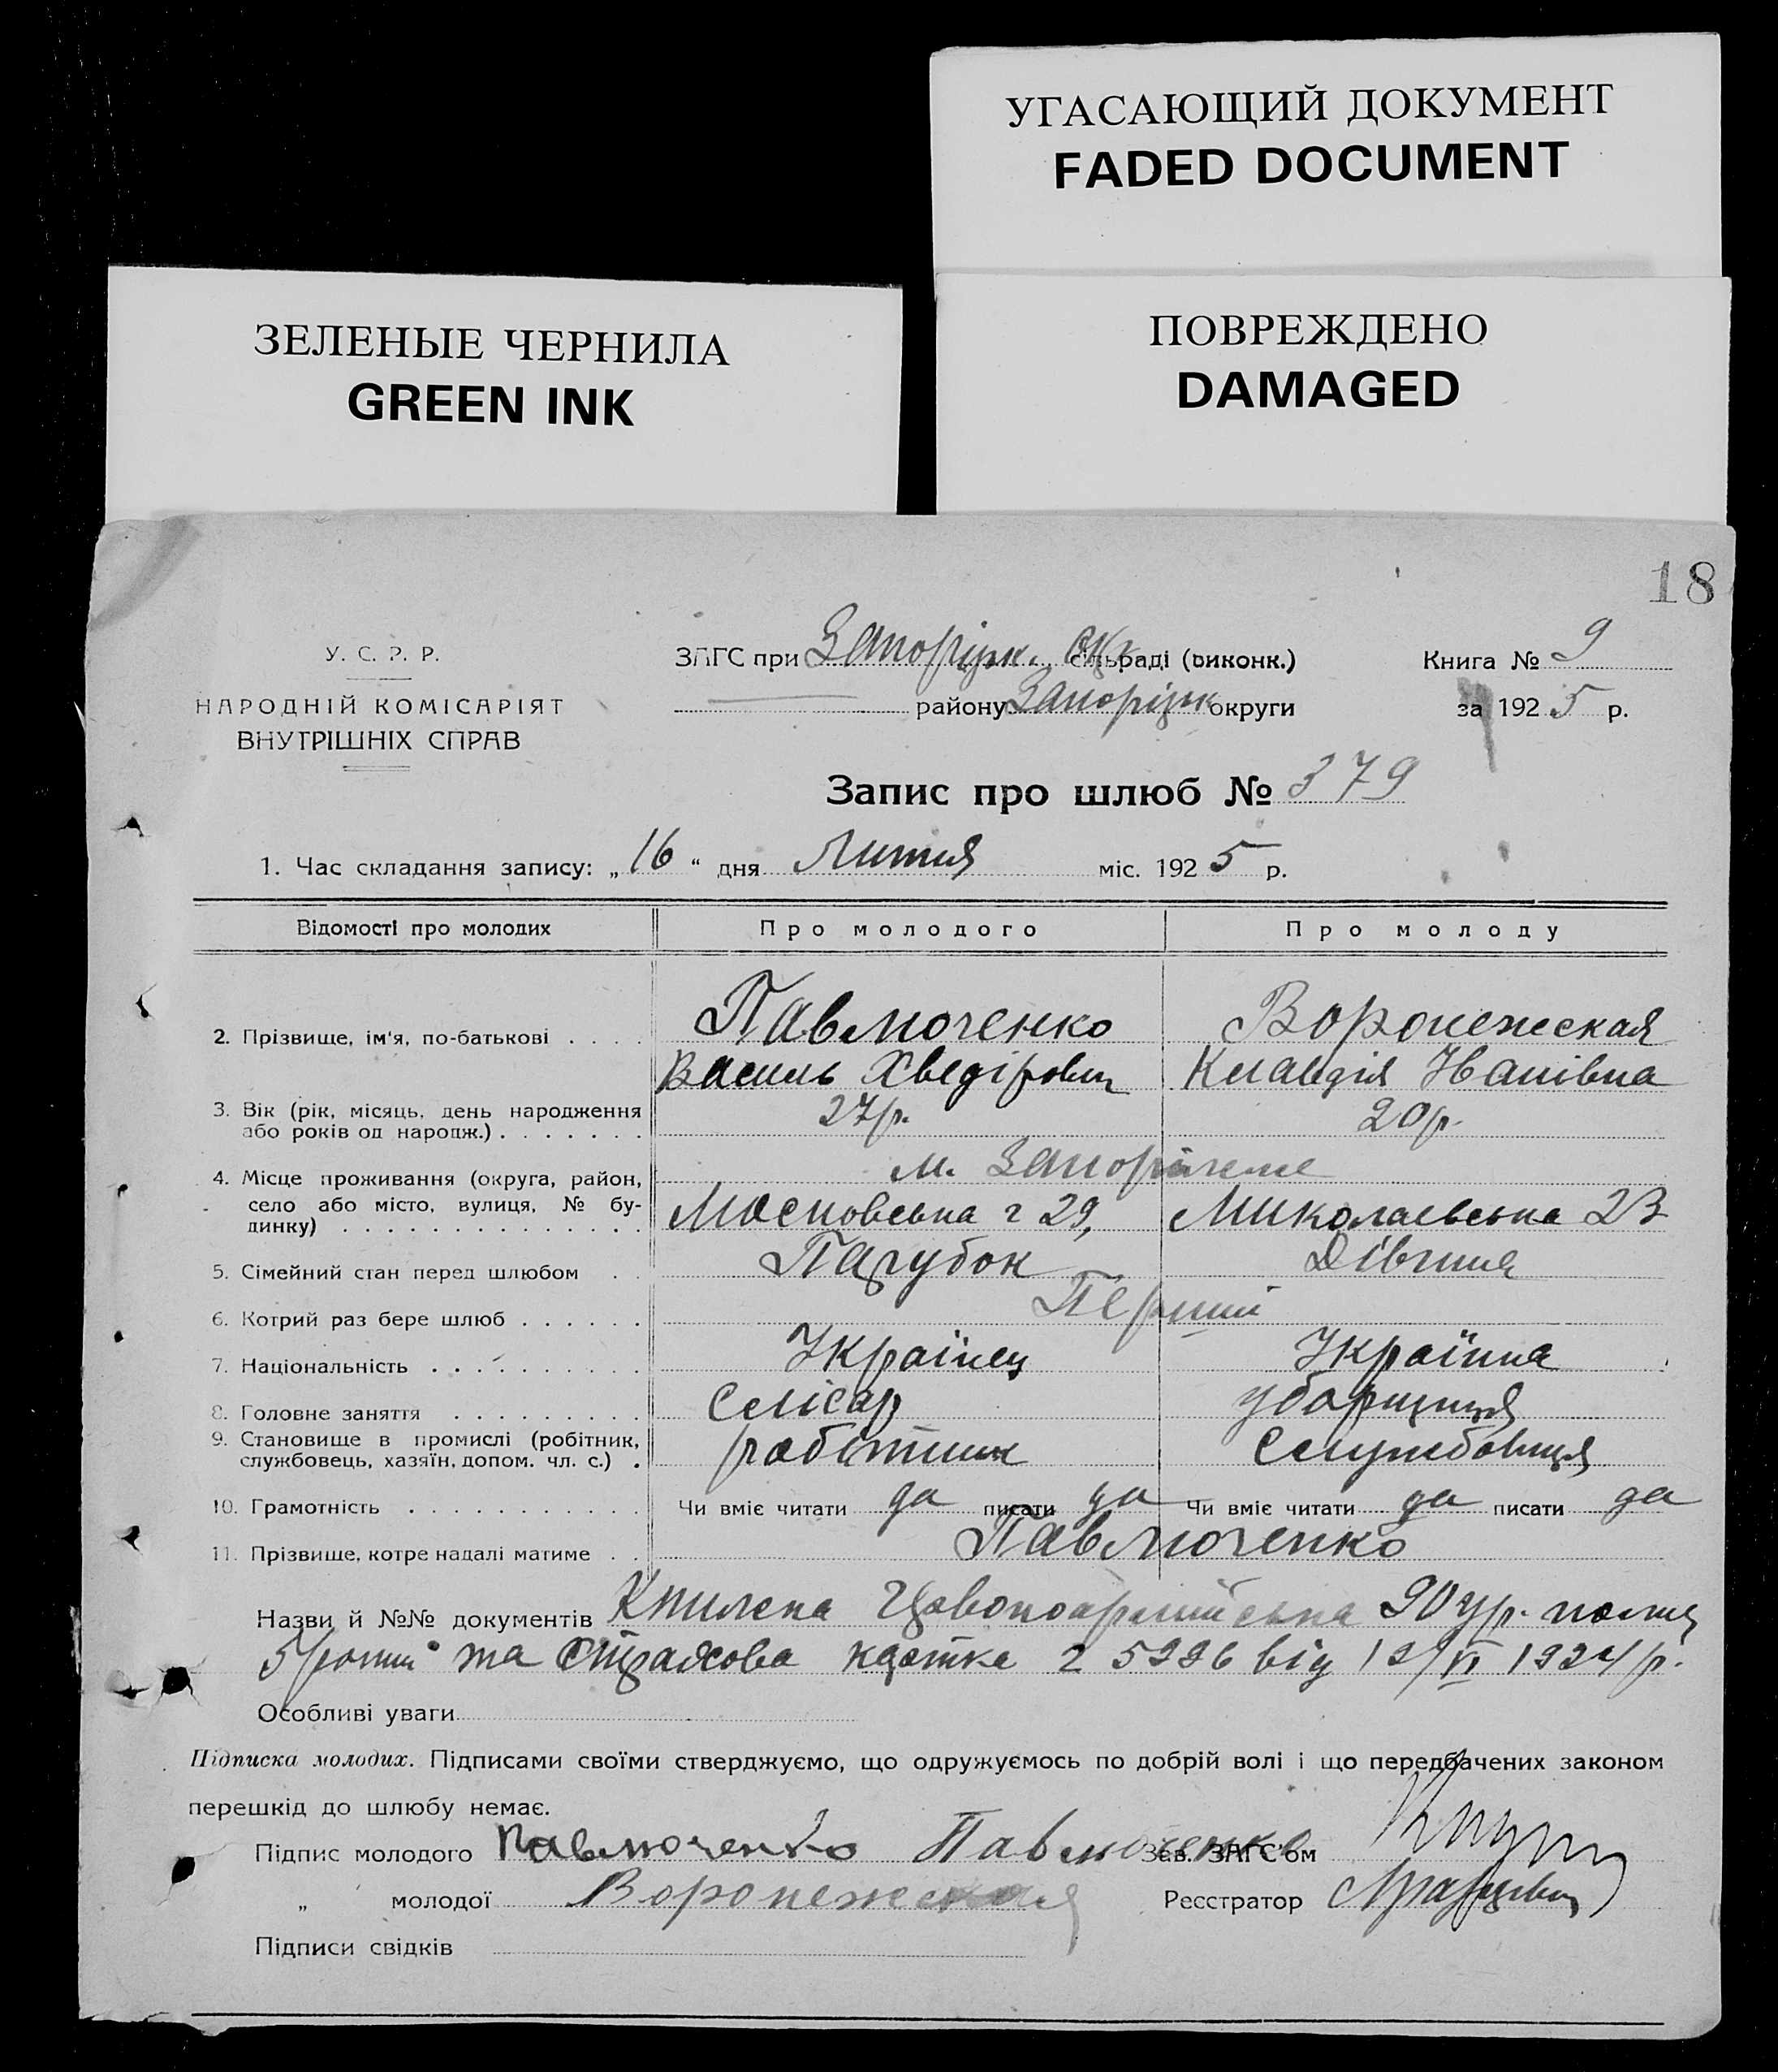 УГАСАЮЩИЙ ДОКУМЕНТ
FADED DOCUMENT
ЗЕЛЕНЫЕ ЧЕРНИЛА
GREEN INK
ПОВРЕЖДЕНО
DAMAGED
18
У. С. Р. Р.
НАРОДНІЙ КОМІСАРІЯТ
ВНУТРІШНІХ СПРАВ
ЗАГС при Запоріцк. окр сільраді (виконк.)
району Запоріцк округи
Книга № 9
за 1925 р.
Запис про шлюб № 379
1. Час складання запису: „16“ дня Лютня міс. 1925 р.
Відомості про молодих Про молодого Про молоду
2. Прізвище, ім'я, по-батькові . . . . Павлюченко Воронежская
Василь Хведірович Клавдія Іванівна
3. Вік (рік, місяць, день народження 27 р. 20 р.
або років од народж.) . . . . . . .
4. Місце проживання (округа, район, м. Запоріжже
село або місто, вулиця, № бу- Московська ч 29, Миколаевська 23
динку) . . . . . . . . . . . . .
5. Сімейний стан перед шлюбом . . Парубок Дівчина
6. Котрий раз бере шлюб . . . . . . Перший
7. Національність . . . . . . . . . . Українец Українка
8. Головне заняття . . . . . . . . . Слісар убарщиця
9. Становище в промислі (робітник, робітник Службовиця
службовець, хазяїн, допом. чл. с.) .
10. Грамотність . . . . . . . . . . . Чи вміє читати да писати да Чи вміє читати да писати да
11. Прізвище, котре надалі матиме . . Павлюченко
Назви й №№ документів Книжка Червоноармійська 90 ур. полку
5 роти та страхова картка ч 5226 від 19/VI 1924 р.
Особливі уваги
Підписка молодих. Підписами своїми стверджуємо, що одружуємось по добрій волі і що передбачених законом
перешкід до шлюбу немає.
Підпис молодого Павлюченко Павлюченко Зав. ЗАГС'ом
„ молодої Воронежская Реєстратор
Підписи свідків